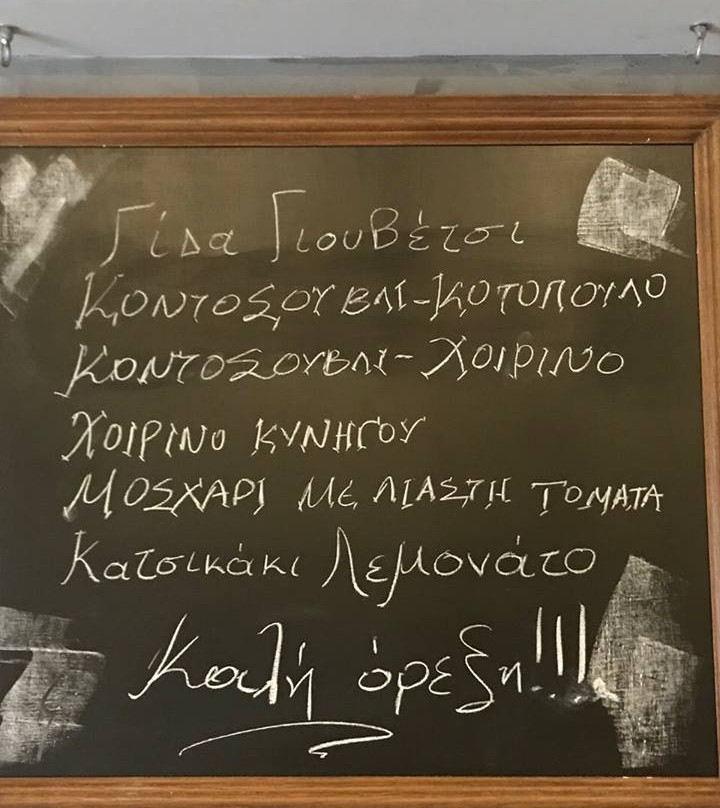 Γίδα Γιουβέτσι
ΚΟΝΤΟΣΟΥΒΛΙ-ΚΟΤΟΠΟΥΛΟ
ΚΟΝΤΟΣΟΥΒΛΙ-ΧΟΙΡΙΝΟ
ΧΟΙΡΙΝΟ ΚΥΝΗΓΟΥ
ΜΟΣΧΑΡΙ ΜΕ ΛΙΑΣΤΗ ΤΟΜΑΤΑ
Κατσικάκι Λεμονάτο
Καλή όρεξη!!!